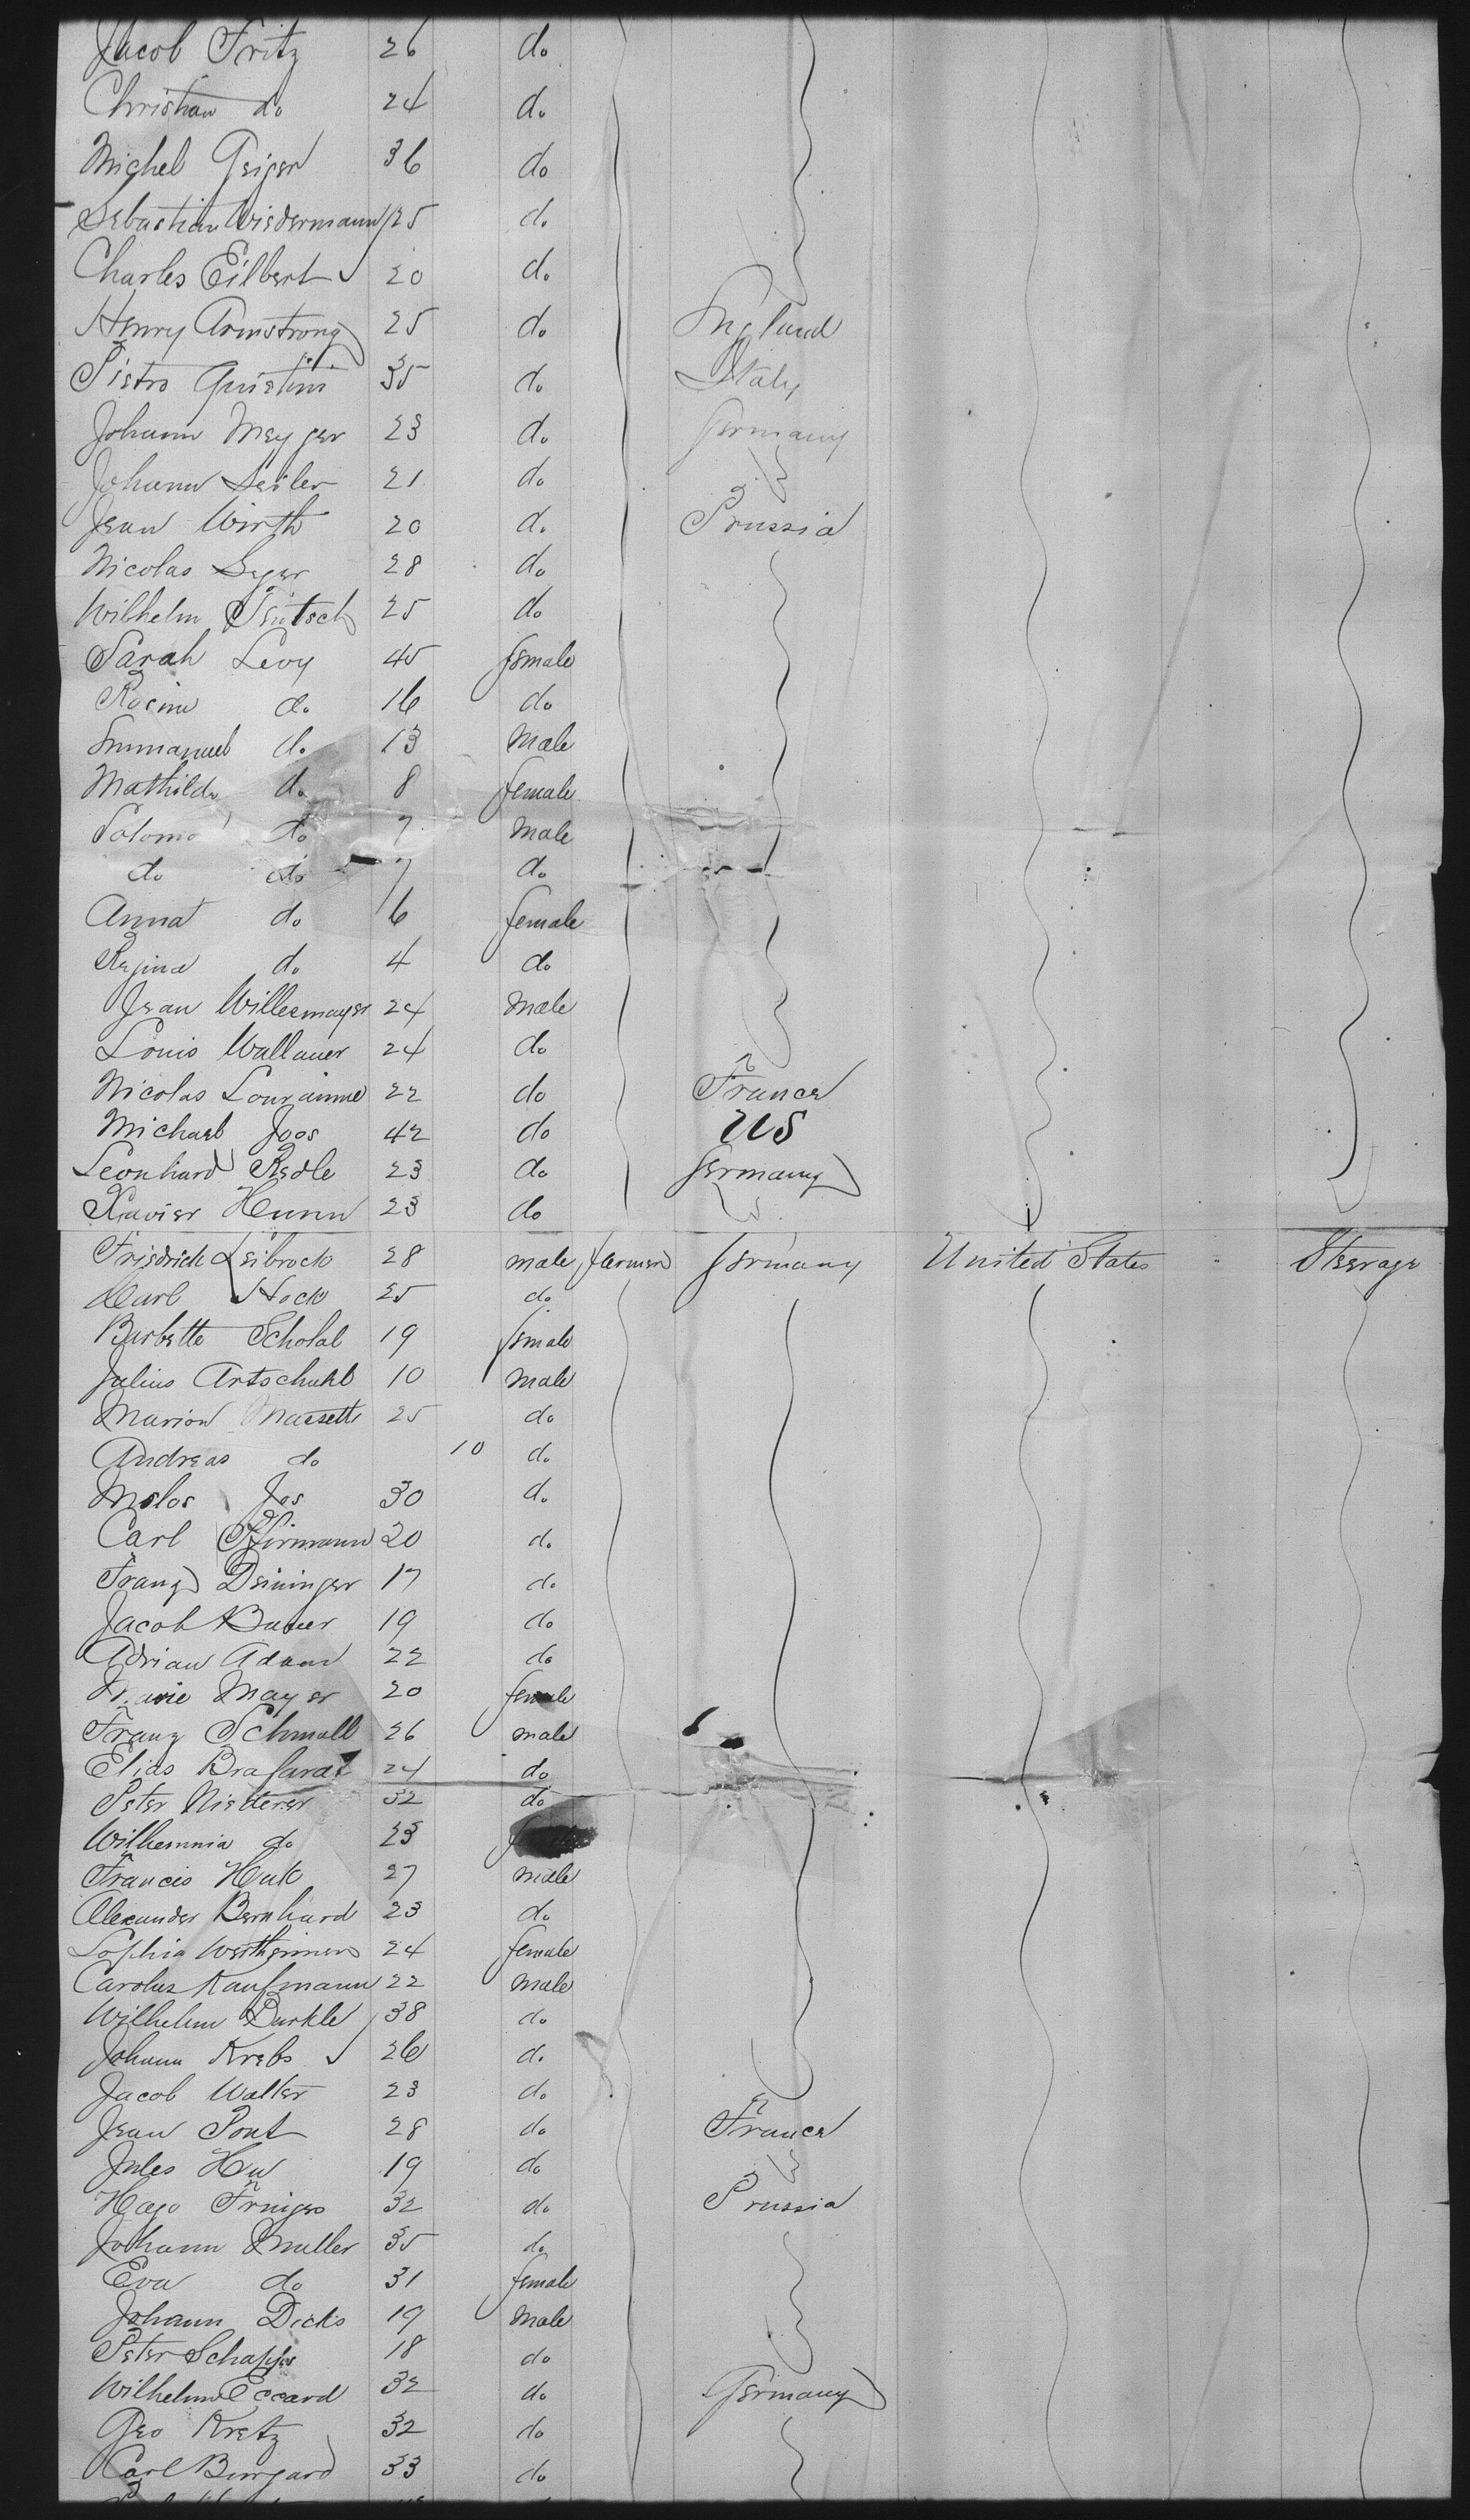 Jacob Fritz 26 do
Christian do 24 do
Michel Geiger 36 do
Sebastian Wiedermann 25 do
Charles Eilbert 20 do
Henry Armstrong 25 do England
Pietro 35 do Italy
Johann Meyger 23 do Germany
Johann Seiler 21 do
Jean Wirth 20 do Prussia
Nicolas Leger 28 do
Wilhelm Teutsch 25 do
Sarah Levy 45 female
Rosine do 16 do
Emmanuel do 13 male
Mathilde do 8 female
Solomo do 7 male
do do 7 do
Anna do 6 female
Regina do 4 do
Jean Willesmayer 24 male
Louis Wallauer 24 do
Nicolas Lourainne 22 do France
Michael Joos 42 do US
Leonhard Redle 23 do Germany
Xavier Hunn 23 do
Friedrich Leibrock 28 male farmer Germany United States Steerage
Karl Hock 25 do
Barbette Scholal 19 female
Julius Artschuhl 10 male
Marion Massette 25 do
Andreas do 10 do
Melos Jos 30 do
Carl Pfirmann 20 do
Franz Deininger 17 do
Jacob Bauer 19 do
Adrian Adam 22 do
Marie Mayer 20 female
Franz Schmall 26 male
Elias Brafarat 24 do
Peter Niederer 32 do
Wilhemnia do 23
Francis Huk 27 male
Alexander Bernhard 23 do
Sophia Wertheimer 24 female
Carolus Kaufmann 22 male
Wilhelm Darkle 38 do
Johann Krebs 26 do
Jacob Walter 23 do
Jean Pont 28 do France
Jules Hu 19 do
Hago 32 do Prussia
Johann Muller 35 do
Eva do 31 female
Johann Dicks 19 male
Peter Schaffer 18 do
Wilhelm Eccard 32 do Germany
Geo Kretz 32 do
Carl Burgard 33 do